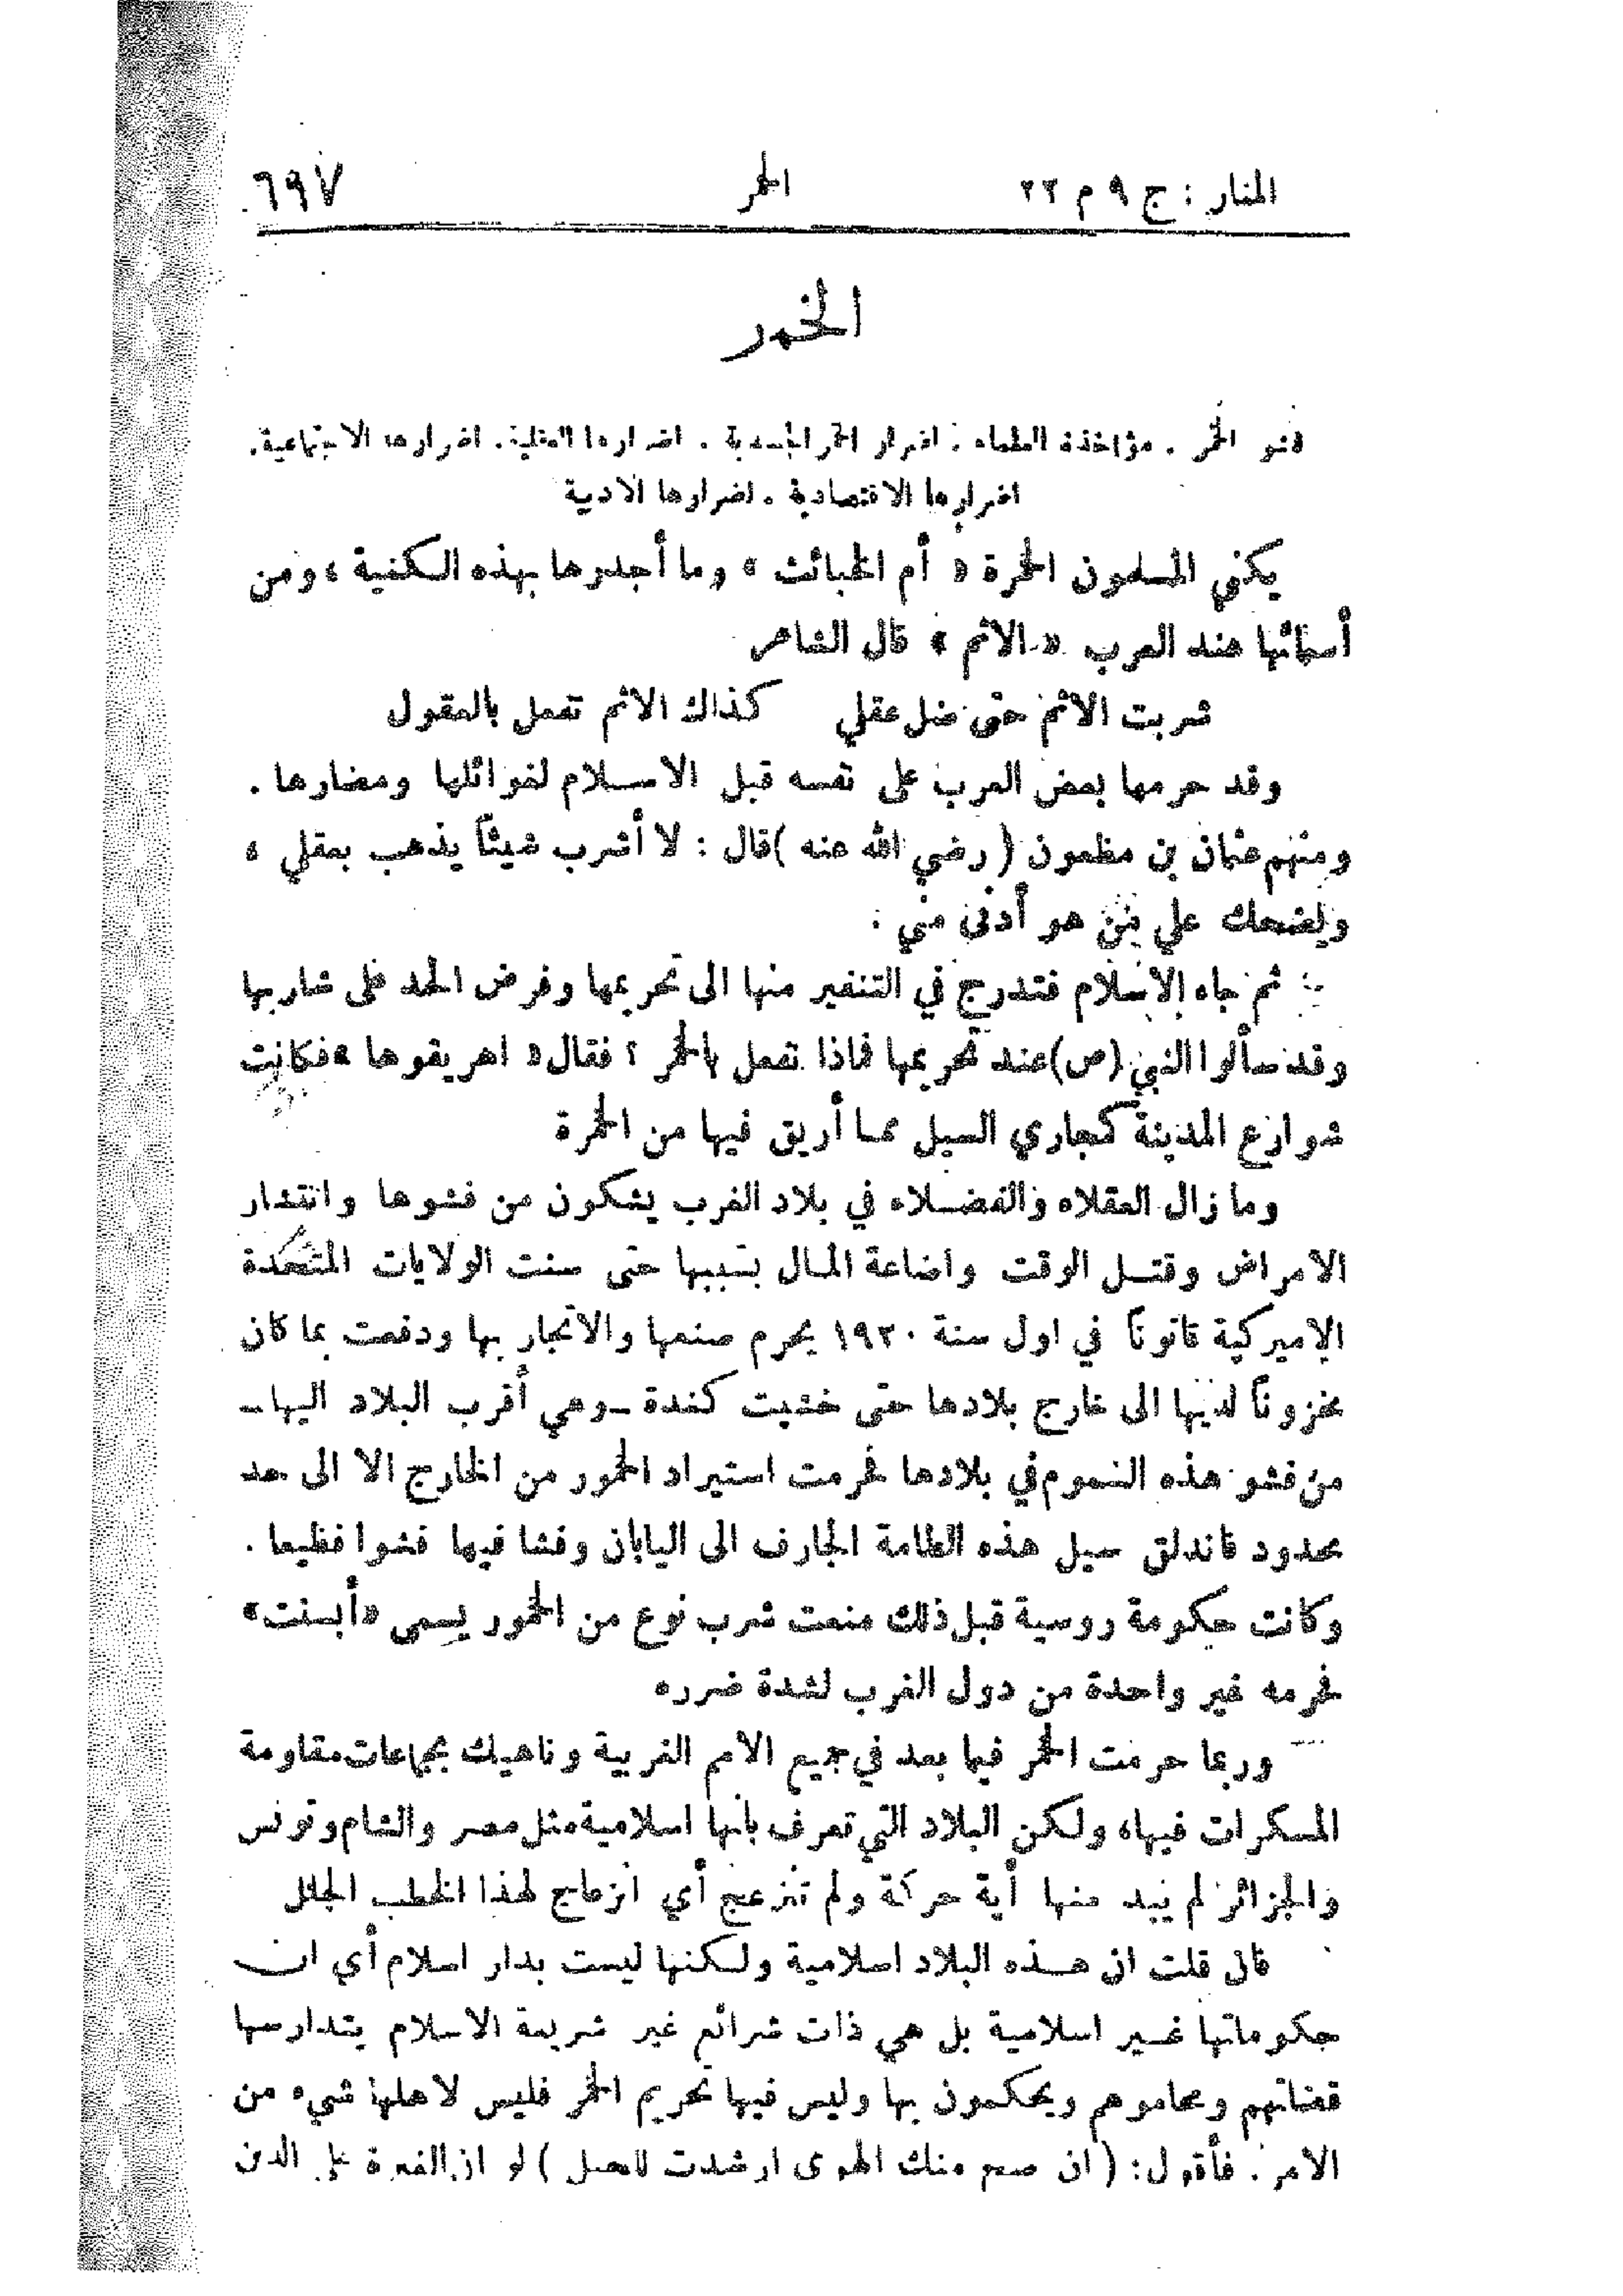 المنار : ج ٩ م ٢٢ الخمر ٦٩٧
الخمر
فشو الخمر . مؤاخذة العلماء . اضرار الخمر الجسدية . اضرارها العقلية . اضرارها الاجتماعية .
اضرارها الاقتصادية . اضرارها الادبية
يكني المسلمون الخمرة « أم الخبائث » وما أجدرها بهذه الكنية ، ومن
أسمائها عند العرب « الاثم » قال الشاعر
شربت الاثم حتى ضل عقلي كذاك الاثم تفعل بالعقول
وقد حرمها بعض العرب على نفسه قبل الاسلام لغوائلها ومضارها .
ومنهم عثمان بن مظعون ( رضي الله عنه ) قال : لا أشرب شيئاً يذهب بعقلي ،
ويضحك علي من هو أدنى مني .
ثم جاء الاسلام فتدرج في التنفير منها الى تحريمها وفرض الحد على شاربها
وقد سألوا النبي (ص) عند تحريمها فماذا تفعل بالخمر ؟ فقال « اهريقوها » فكانت
شوارع المدينة كمجاري السيل مما أريق فيها من الخمرة
وما زال العقلاء والفضلاء في بلاد الغرب يشكون من فشوها وانتشار
الامراض وقتل الوقت واضاعة المال بسببها حتى سنت الولايات المتحدة
الاميركية قانوناً في اول سنة ١٩٢٠ يحرم صنعها والاتجار بها ودفعت بما كان
مخزوناً لديها الى خارج بلادها حتى خشيت كندة - وهي أقرب البلاد اليها -
من فشو هذه السموم في بلادها فحرمت استيراد الخمور من الخارج الا الى حد
محدود فاندلق سيل هذه الطامة الجارف الى اليابان وفشا فيها فشوا فظيعا .
وكانت حكومة روسية قبل ذلك منعت شرب نوع من الخمور يسمى «أبسنت»
فحرمه غير واحدة من دول الغرب لشدة ضرره
وربما حرمت الخمر فيما بعد في جميع الامم الغربية وناهيك بجماعات مقاومة
المسكرات فيها، ولكن البلاد التي تعرف بأنها اسلامية مثل مصر والشام وتونس
والجزائر لم يبد منها أية حركة ولم تنزعج أي انزعاج لهذا الخطب الجلل
فان قلت ان هذه البلاد اسلامية ولكنها ليست بدار اسلام أي ان
حكوماتها غير اسلامية بل هي ذات شرائع غير شريعة الاسلام يتدارسها
قضاتهم ومحاموهم ويحكمون بها وليس فيها تحريم الخمر فليس لاهلها شيء من
الامر . فأقول: ( ان صح منك الهوى ارشدت للحيل ) لو ان الغيرة على الدين